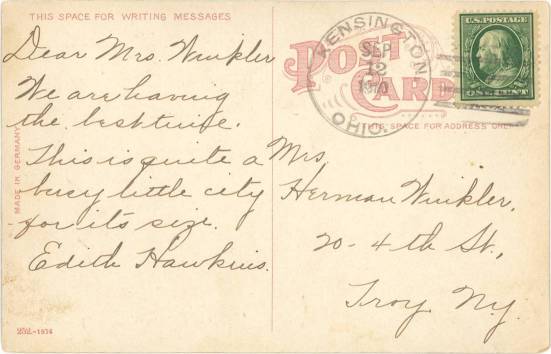 THIS SPACE FOR WRITING MESSAGES
Dear Mrs. Winkler
We are having
the best time.
This is quite a
busy little city
for its size.
Edith Hawkins.
MADE IN GERMANY
252-1934
POST
CARD
KENSINGTON
SEP
12
1910
OHIO.
U.S. POSTAGE
ONE CENT
THIS SPACE FOR ADDRESS ONLY
Mrs.
Herman Winkler.
20-4th St.,
Troy. N.y.